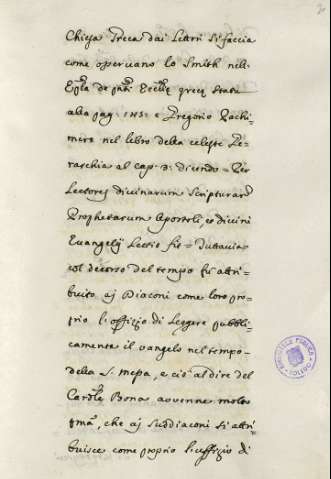 2
Chiesa Greca dai Lettori si faccia
come opervano lo Smith nell
Epla de pñti Ecclię gręcę statu
alla pag. 113. e Gregorio Pachi=
mero nel libro della celeste Ge=
rarchia al cap. 3. dicendo = Per
Lectores divinarum Scripturarũ
Prophetarum Apostoli, et divini
Evangelij Lectio fit = Tuttavia
col decorso del tempo fù attri=
buito aj Diaconi come loro pro=
prio l'offizio di Leggere pubbli=
camente il vangelo nel tempo
della S. Messa, e ciò al dire del
Cardle Bona avvenne molto
pma, che aj Suddiaconi si attri
buisce come proprio l'uffizio di
BIBLIOTECA PUBLICA
TOLEDO